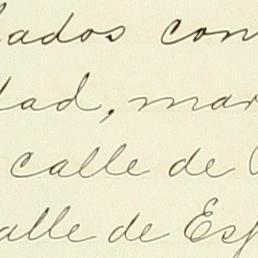 lados con
dad, mar
calle de
alle de Es